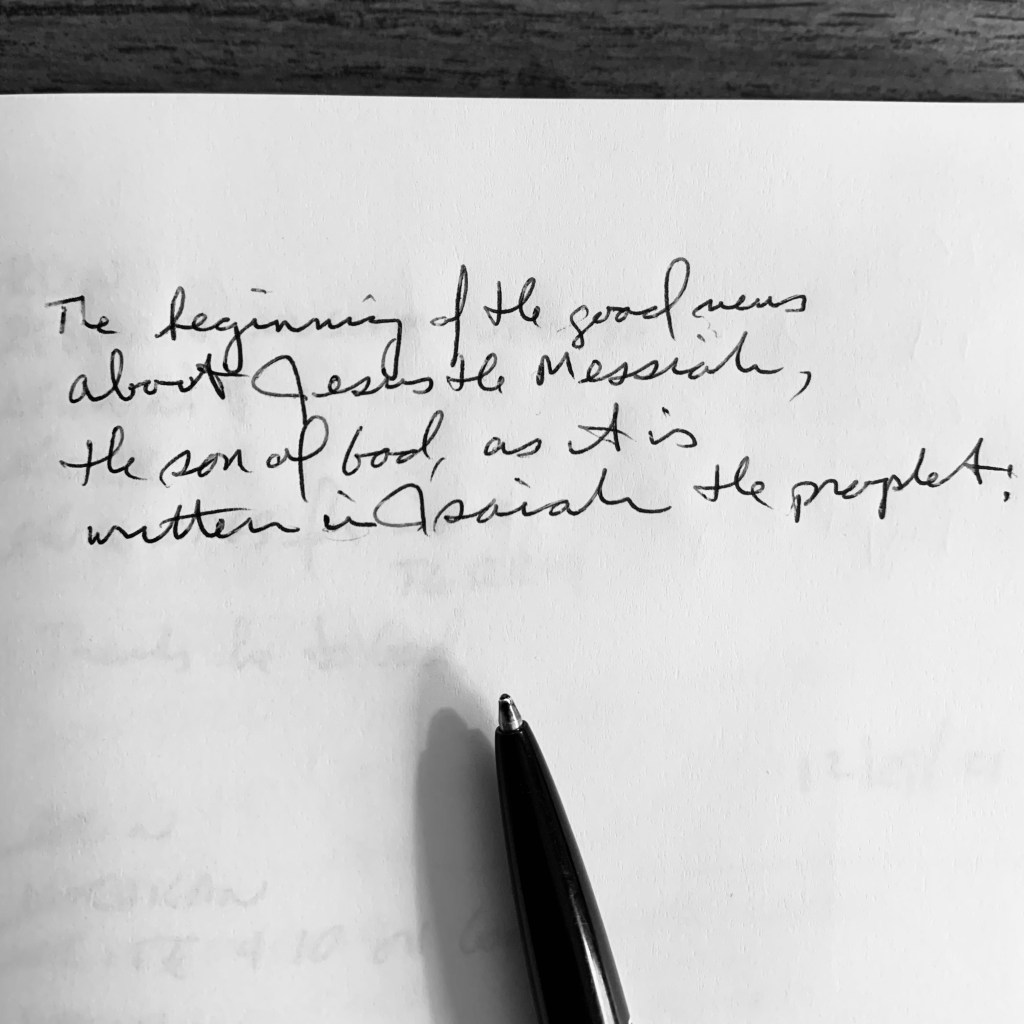 The beginning of the good news
about Jesus the Messiah,
the son of God, as it is
written in Isaiah the prophet:
Thanks be to God